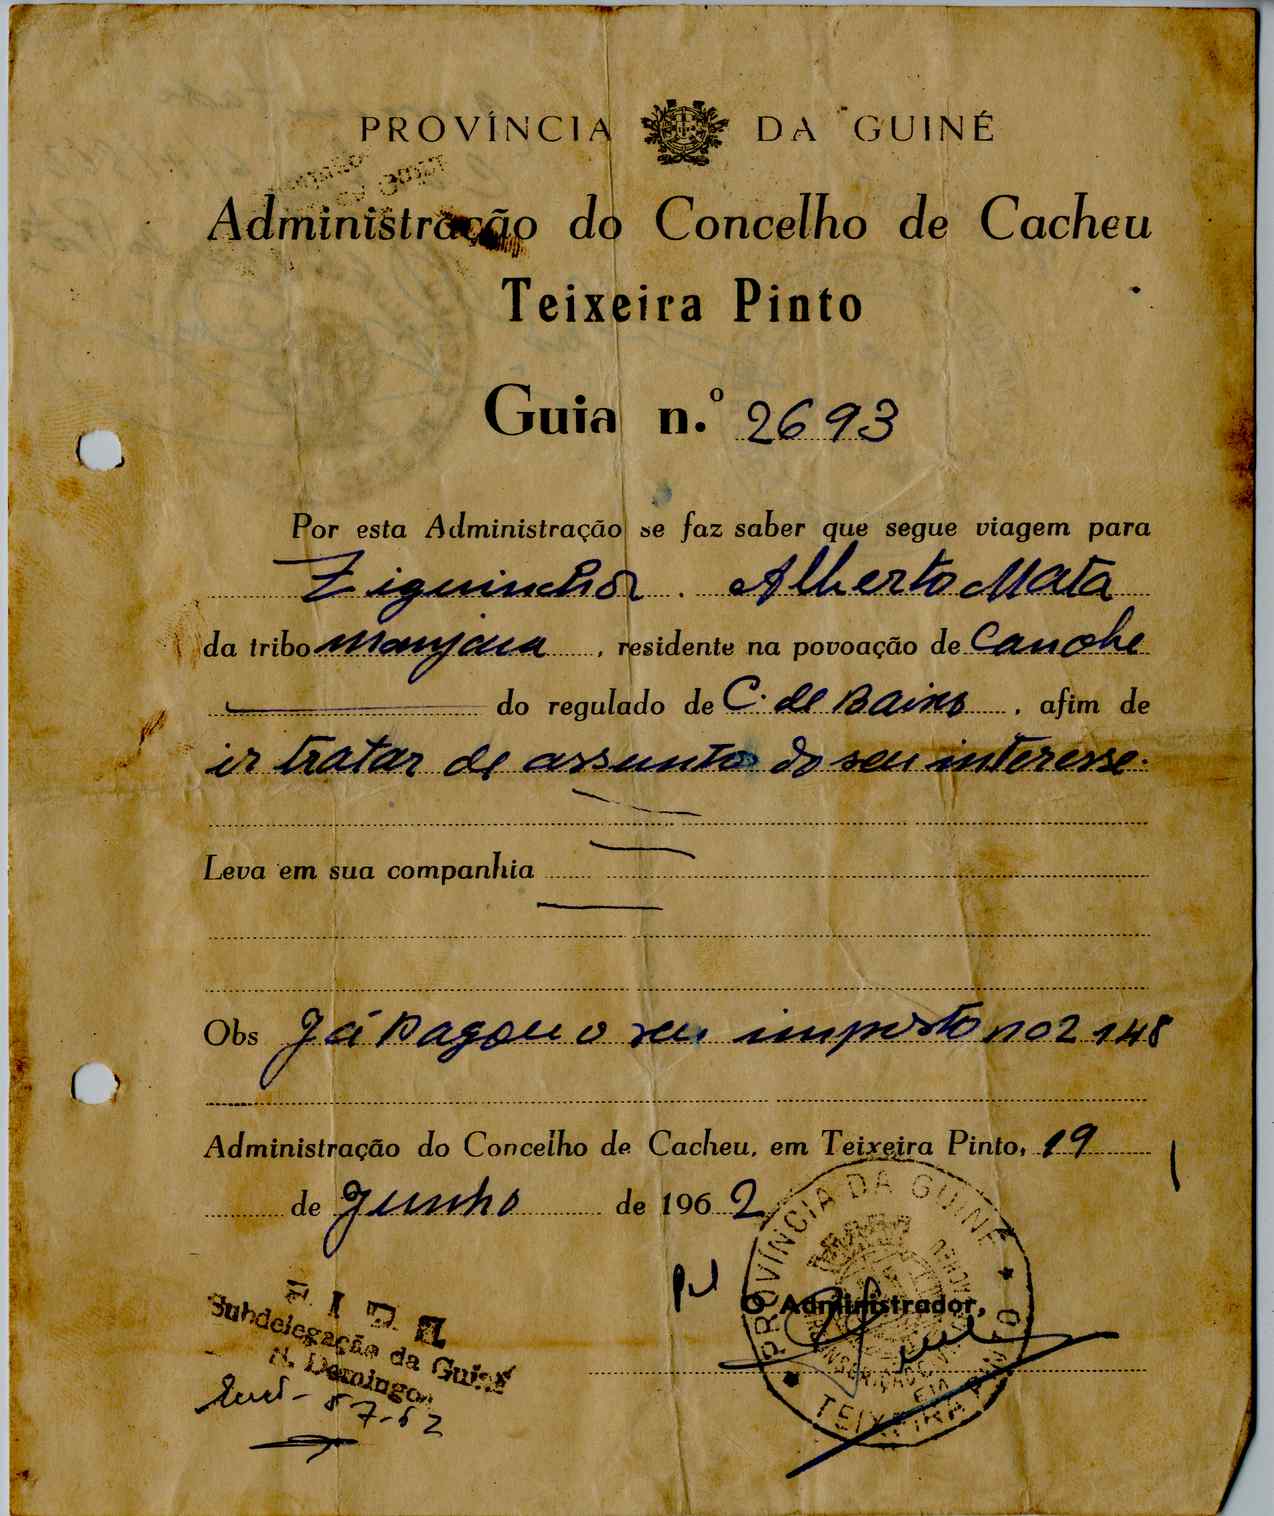 PROVÍNCIA DA GUINÉ
Administração do Concelho de Cacheu
Teixeira Pinto
Guia n.º 2693
Por esta Administração se faz saber que segue viagem para
Ziguinchor. Alberto Mata
da tribo Manjaca, residente na povoação de Canobe
do regulado de C. de Baixo, afim de
ir tratar de assunto do seu interesse.
Leva em sua companhia
Obs Já pagou o seu imposto no 2148
Administração do Concelho de Cacheu, em Teixeira Pinto, 19
de Junho de 1962
O Administrador,
PROVÍNCIA DA GUINÉ
TEIXEIRA PINTO
P. I. D. E.
Subdelegação da Guiné
S. Domingos
7-62